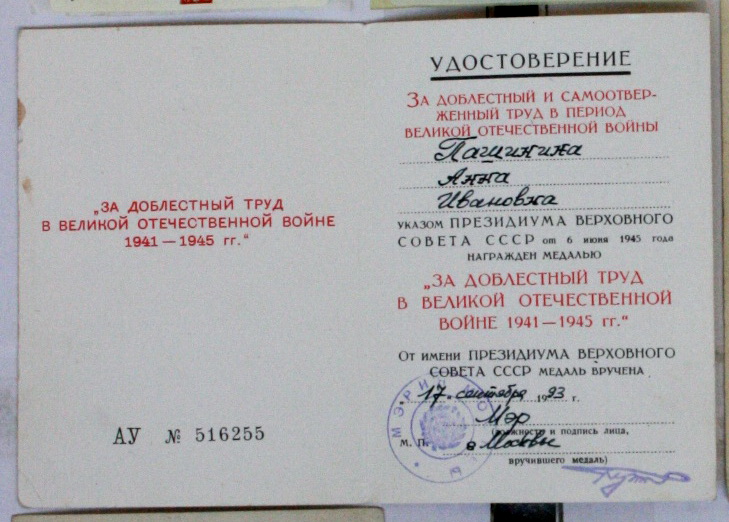 „ЗА ДОБЛЕСТНЫЙ ТРУД
В ВЕЛИКОЙ ОТЕЧЕСТВЕННОЙ ВОЙНЕ
1941 — 1945 гг.“
АУ № 516255
УДОСТОВЕРЕНИЕ
ЗА ДОБЛЕСТНЫЙ И САМООТВЕР-
ЖЕННЫЙ ТРУД В ПЕРИОД
ВЕЛИКОЙ ОТЕЧЕСТВЕННОЙ ВОЙНЫ
Пашинина
Анна
Ивановна
УКАЗОМ ПРЕЗИДИУМА ВЕРХОВНОГО
СОВЕТА СССР от 6 июня 1945 года
НАГРАЖДЕН МЕДАЛЬЮ
„ЗА ДОБЛЕСТНЫЙ ТРУД
В ВЕЛИКОЙ ОТЕЧЕСТВЕННОЙ
ВОЙНЕ 1941 — 1945 гг.“
От имени ПРЕЗИДИУМА ВЕРХОВНОГО
СОВЕТА СССР МЕДАЛЬ ВРУЧЕНА
17 сентября 1993 г.
Мэр
(должность и подпись лица,
М. П. г Москвы
вручившего медаль)
МЭРИЯ МОСКВЫ